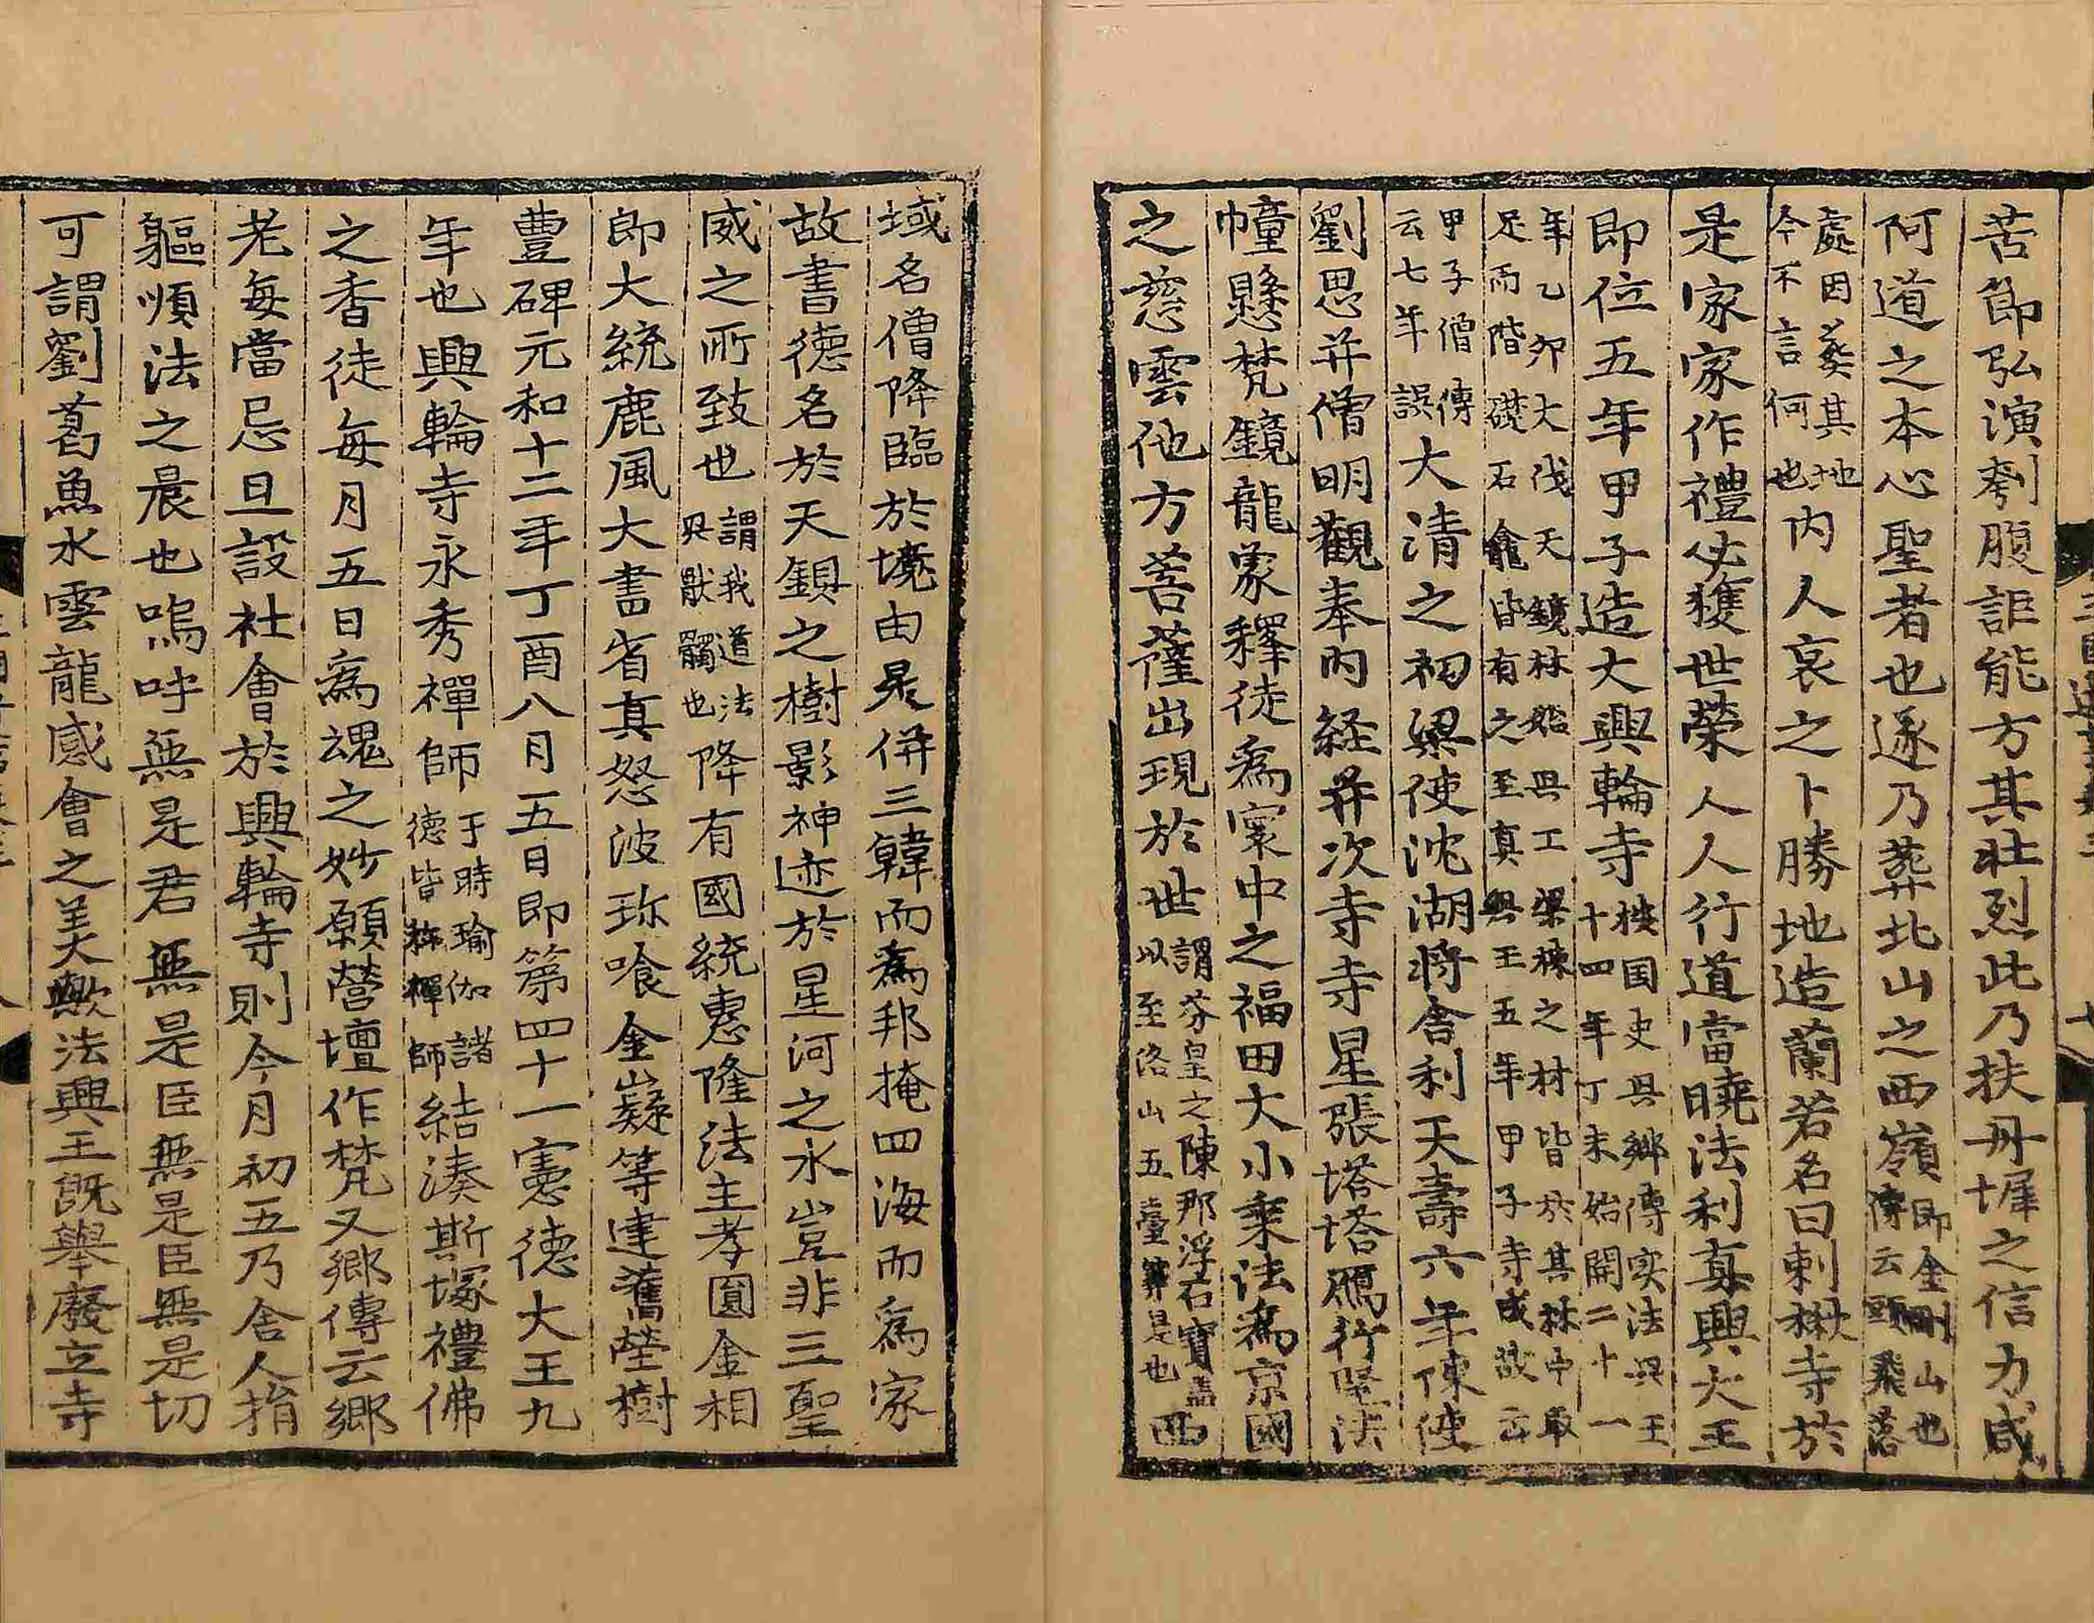 苦節弘演刳腹詎能方其壯烈此乃扶丹墀之信力咸
阿道之本心聖者也遂乃葬北山之西嶺即金剛山也傳云頭飛落
處因葬其地今不言何也内人哀之卜勝地造蘭若名曰刺楸寺於
是家家作禮必獲世榮人人行道當曉法利真興大王
即位五年甲子造大興輪寺按国史与鄉傳实法興王十四年丁未始開二十一
年乙卯大伐天鏡林始興工梁棟之材皆於其林中取足而階礎石龕皆有之至真興王五年甲子寺成故云
甲子僧傳云七年誤大清之初梁使沈湖將舍利天壽六年陳使
劉思并僧明觀奉内経并次寺寺星張塔塔鴈行竪法
幢懸梵鏡龍象釋徒爲寰中之福田大小乗法爲京國
之慈雲他方菩薩出現於世謂芬皇之陳那浮石寶盖以至洛山五臺等是也西
域名僧降臨於境由是併三韓而爲邦掩四海而爲家
故書徳名於天鋇之樹影神迹於星河之水豈非三聖
威之所致也謂我道法興厭髑也降有國統惠隆法主孝圓金相
郎大統鹿風大書省真怒波珎喰金嶷等建舊塋樹
豊碑元和十二年丁酉八月五日即第四十一憲徳大王九
年也興輪寺永秀禪師于時瑜伽諸徳皆称禪師結湊斯塚禮佛
之香徒每月五日爲魂之妙願營壇作梵又鄉傳云鄉
老每當忌旦設社會於興輪寺則今月初五乃舍人捐
軀順法之晨也嗚呼無是君無是臣無是臣無是切
可謂劉葛魚水雲龍感會之美歟法興王旣擧廢立寺